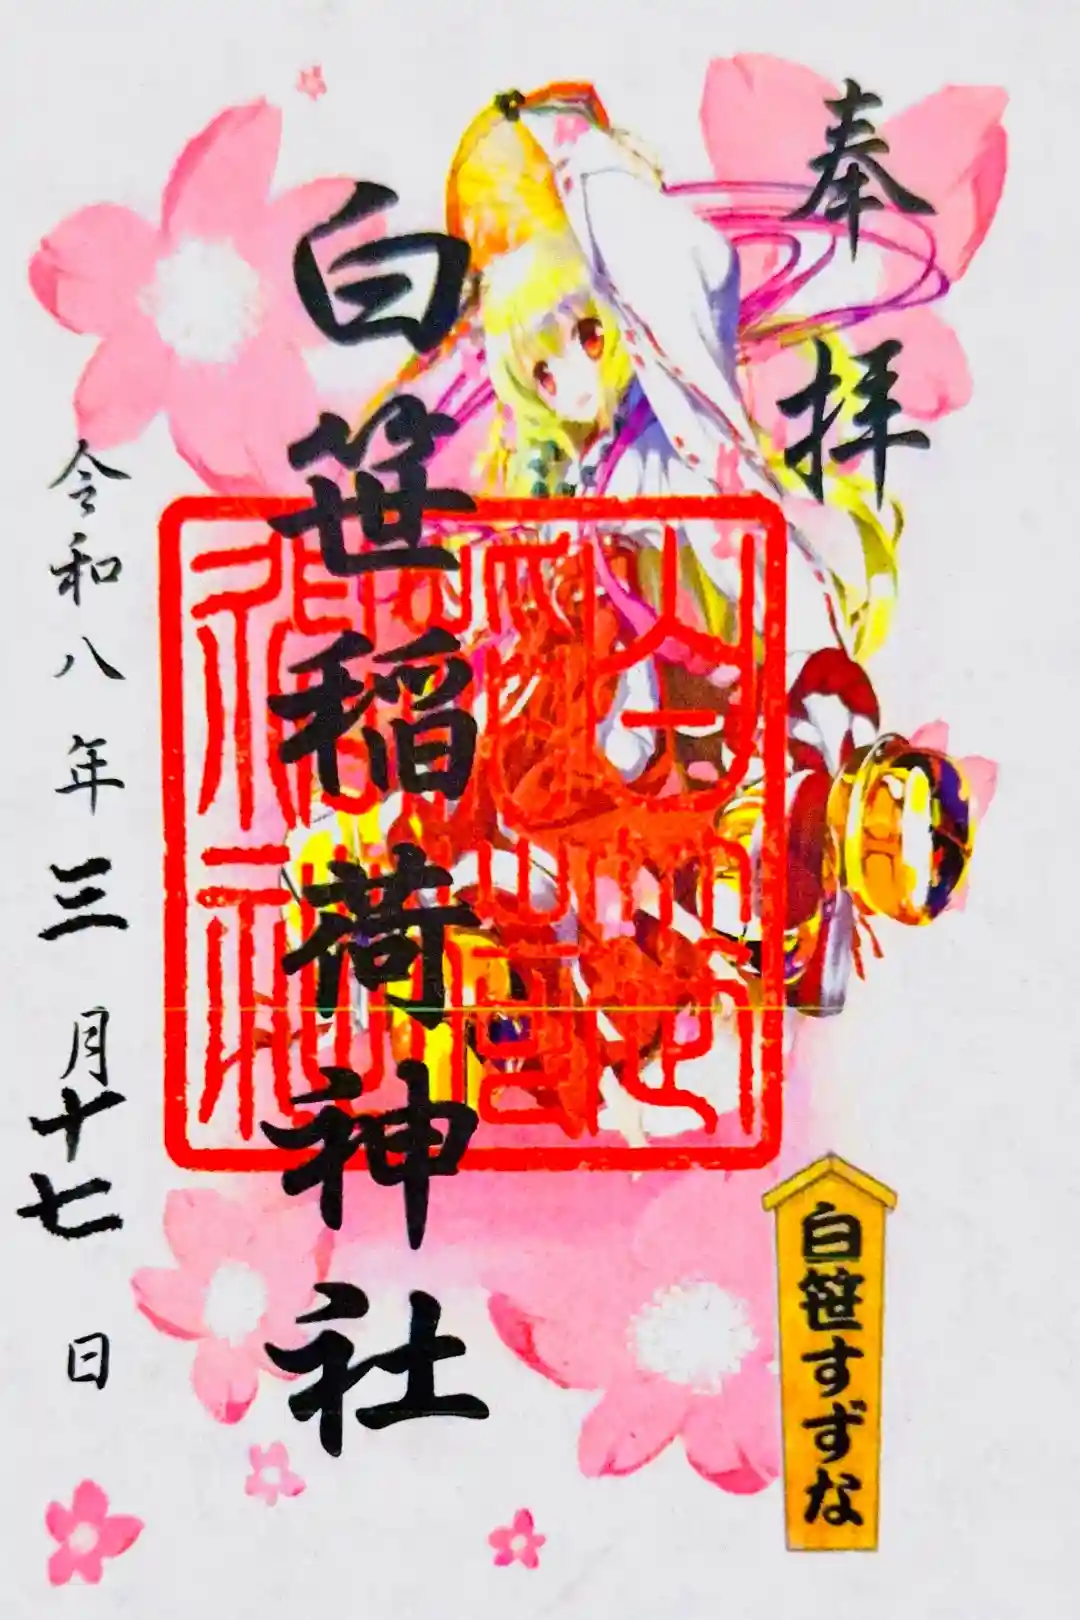 奉拝
白笹稲荷神社
令和八年三月十七日
白笹すずな